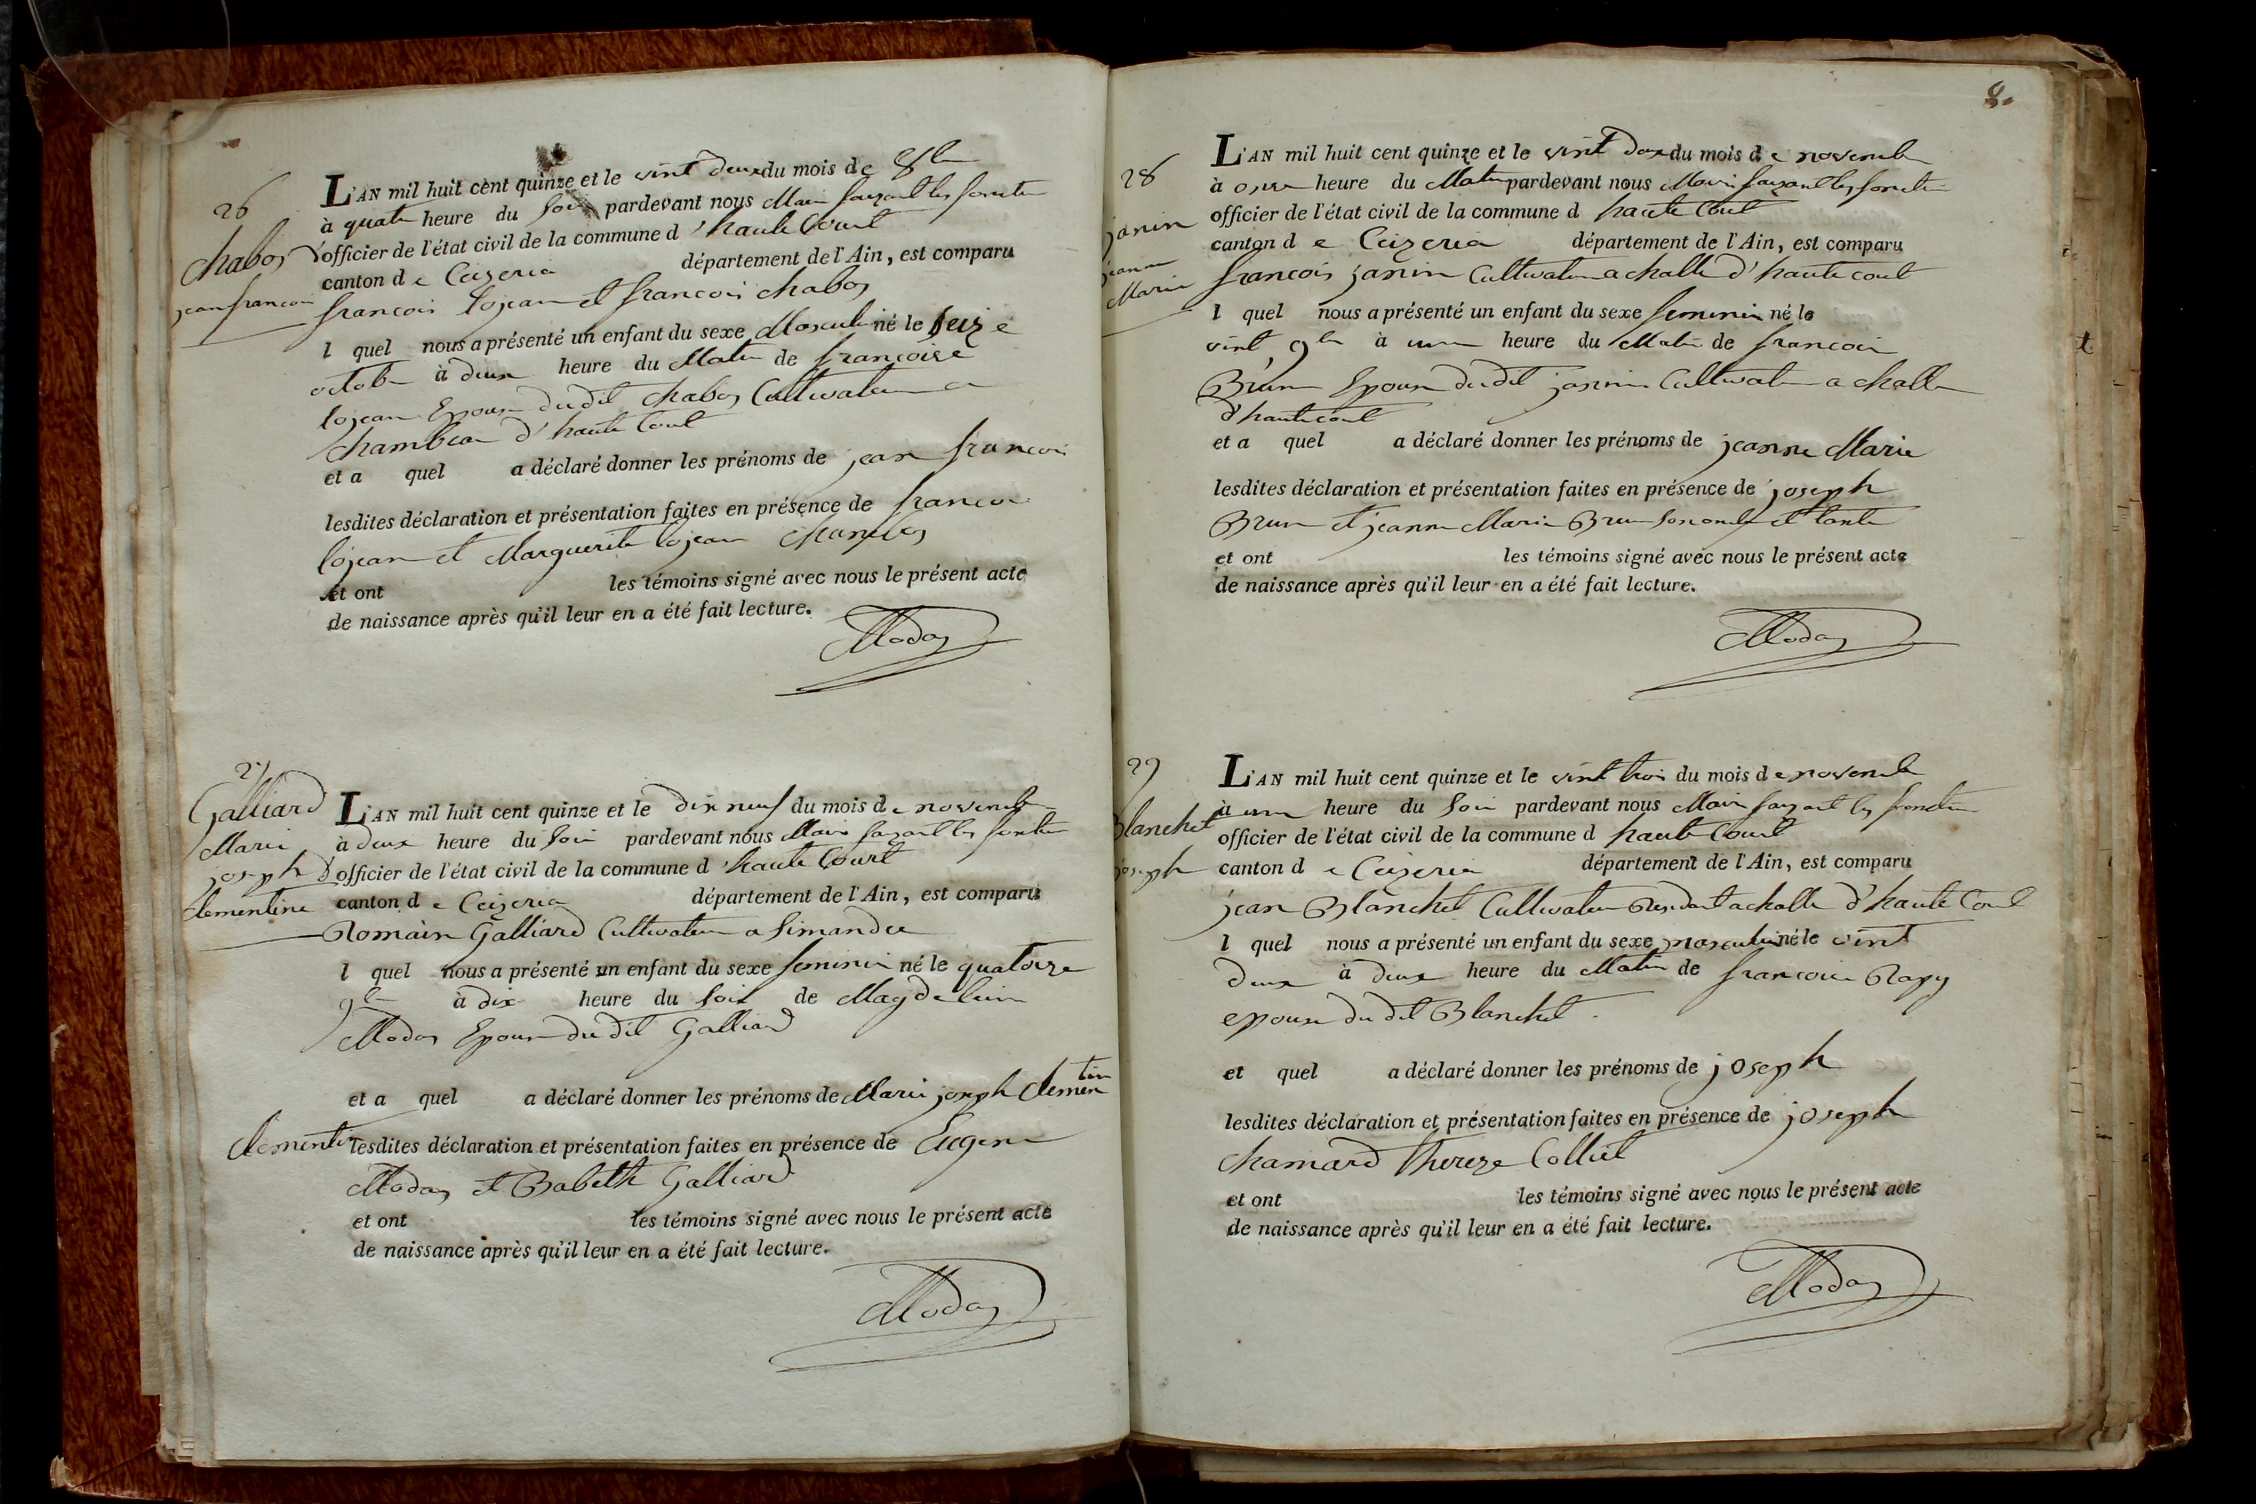 26
chabos
jean francois
L'AN mil huit cent quinze et le vint deux du mois de 8bre
à quatre heure du soir pardevant nous Maire faizant les fonction
d'officier de l'état civil de la commune d'haute Court
canton de Ceizeria département de l'Ain, est comparu
francois lojean et francois chabos
l quel nous a présenté un enfant du sexe Masculin né le seize
octobre à deux heure du Matin de francoise
lojean Epouse du dit chabos Cultivateur a
chambeau d'haute Court
et a quel a déclaré donner les prénoms de jean francois
lesdites déclaration et présentation faites en présence de francois
lojean et Marguerite lojean
et ont les témoins signé avec nous le présent acte
de naissance après qu'il leur en a été fait lecture.
Modas
27
Galliard
Marie
joseph
clementine
L'AN mil huit cent quinze et le dix neuf du mois de novembre
à deux heure du soir pardevant nous Maire faizant les fonction
d'officier de l'état civil de la commune d'haute Court
canton de Ceizeria département de l'Ain, est comparu
Romain Galliard Cultivateur a Simandre
l quel nous a présenté un enfant du sexe feminin né le quatorze
9bre à dix heure du soir de Magdelaine
Modas Epouse du dit Galliard
et a quel a déclaré donner les prénoms de Marie joseph Clementin
clementin
lesdites déclaration et présentation faites en présence de Eugene
Modas et Babeth Galliard
et ont les témoins signé avec nous le présent acte
de naissance après qu'il leur en a été fait lecture.
Modas
8.
28
janin
jeanne
Marie
L'AN mil huit cent quinze et le vint deux du mois de novembre
à onze heure du Matin pardevant nous Maire faizant les fonction
officier de l'état civil de la commune d haute Court
canton de Ceizeria département de l'Ain, est comparu
francois janin Cultivateur a challe d'haute court
l quel nous a présenté un enfant du sexe feminin né le
vint 9bre à une heure du Matin de francoise
Brun Epouse du dit janin Cultivateur a challe
d'haute court
et a quel a déclaré donner les prénoms de jeanne Marie
lesdites déclaration et présentation faites en présence de joseph
Brun et jeanne Marie Brun son oncle et tante
et ont les témoins signé avec nous le présent acte
de naissance après qu'il leur en a été fait lecture.
Modas
29
Blanchet
joseph
L'AN mil huit cent quinze et le vint trois du mois de novembre
à une heure du soir pardevant nous Maire faizant les fonction
officier de l'état civil de la commune d haute Court
canton de Ceizeria département de l'Ain, est comparu
jean Blanchet Cultivateur Residant a challe d'haute Court
l quel nous a présenté un enfant du sexe masculin né le vint
deux à deux heure du Matin de francoise Rapy
epouse du dit Blanchet.
et quel a déclaré donner les prénoms de joseph
lesdites déclaration et présentation faites en présence de joseph
chamard thereze Colliet
et ont les témoins signé avec nous le présent acte
de naissance après qu'il leur en a été fait lecture.
Modas